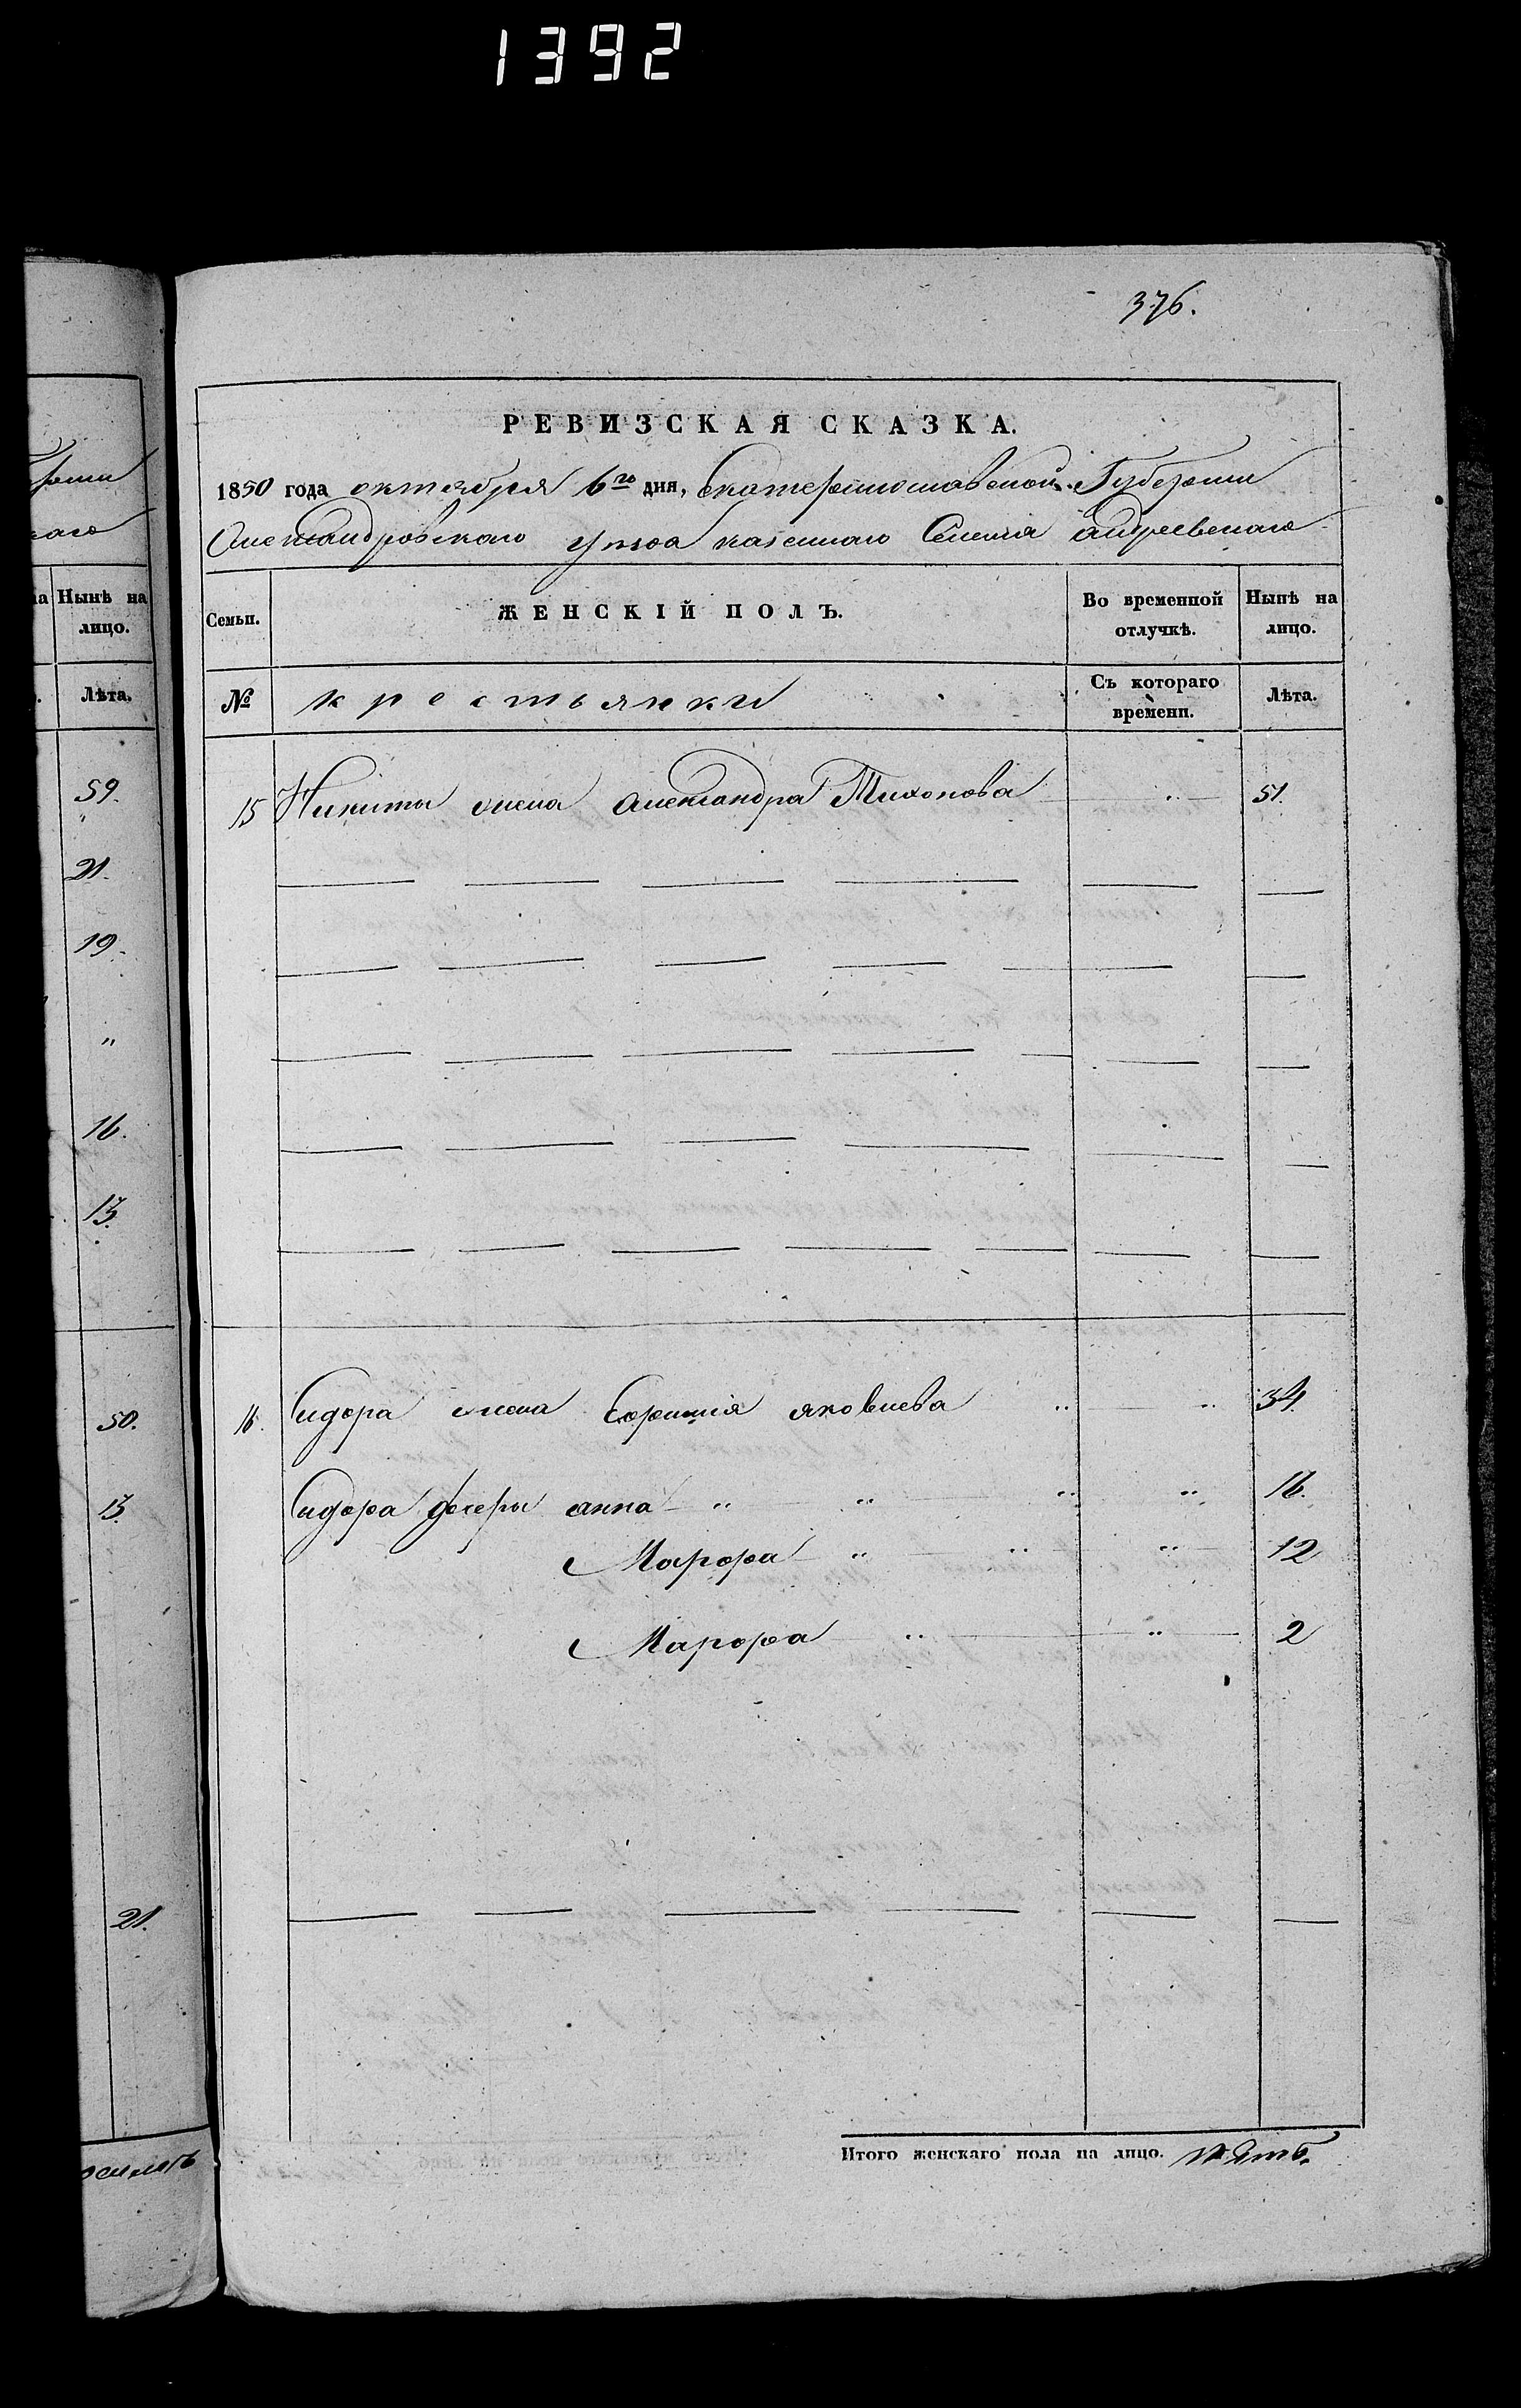 1392
376.
РЕВИЗСКАЯ СКАЗКА.
1850 года октября 6го дня, Екатеринославской Губернии
Александровскаго уезда казеннаго Селения андреевскаго
Семьи. ЖЕНСКІЙ ПОЛЪ. Во временной отлучкѣ. Нынѣ на лицо.
№ крестьянки Съ котораго времени. Лѣта.
15 Никиты жена александра Тихонова " 51.
16. Сидора жена яковлева " " 34
Сидора дочери анна " " " " 16.
Марфа " " " 12
Марфа " " 2
Итого женскаго пола на лицо. пять.
Нынѣ на лицо.
Лѣта.
59.
21.
19.
"
16.
13.
50.
13.
21.